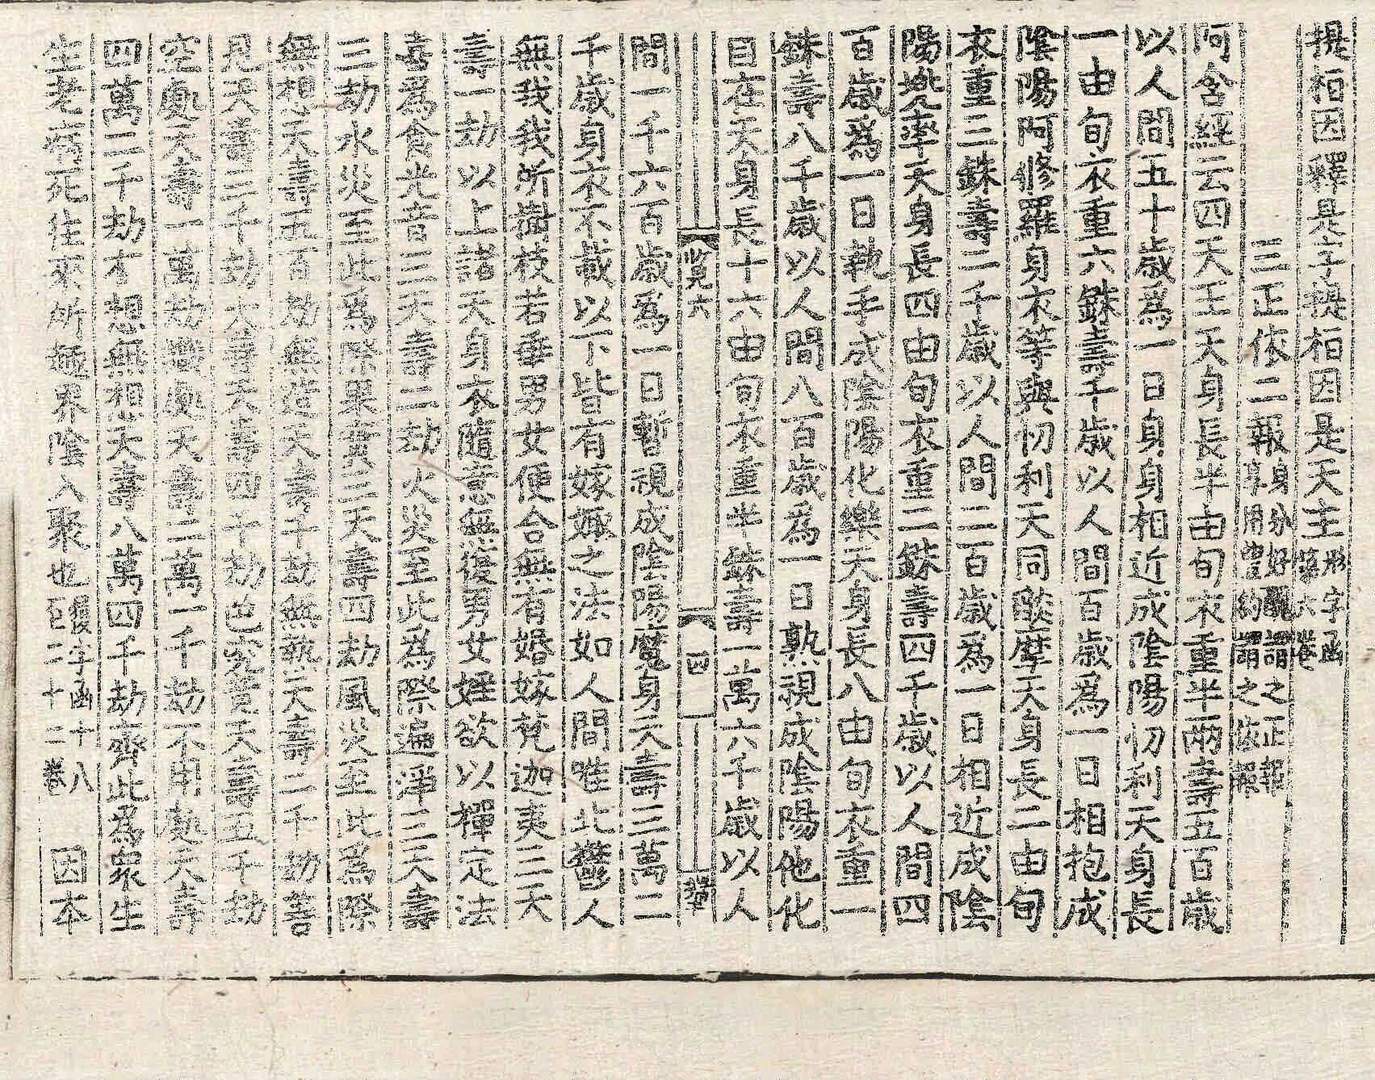 提桓因釋是字提桓因是天主形字函第六卷
三正依二報身分好醜謂之正報享用豊約謂之依報
阿含經云四天王天身長半由旬衣重半兩壽五百歲
以人間五十歲為一日身身相近成陰陽忉利天身長
一由旬衣重六銖壽千歲以人間百歲為一日相抱成
陰陽阿修羅身衣等與忉利天同燄摩天身長二由旬
衣重三銖壽二千歲以人間二百歲為一日相近成陰
陽兜率天身長四由旬衣重二銖壽四千歲以人間四
百歲為一日執手成陰陽化樂天身長八由旬衣重一
銖壽八千歲以人間八百歲為一日熟視成陰陽他化
自在天身長十六由旬衣重半銖壽一萬六千歲以人
覽六 四
間一千六百歲為一日暫視成陰陽魔身天壽三萬二
千歲身衣不載以下皆有嫁娵之法如人間唯北鬱人
無我我所樹枝若垂男女便合無有婚嫁梵迦夷三天
壽一劫以上諸天身衣隨意無復男女婬欲以禪定法
喜為食光音三天壽二劫火災至此為際遍淨三天壽
三劫水災至此為際果實三天壽四劫風災至此為際
無想天壽五百劫無造天壽千劫無熱天壽二千劫善
見天壽三千劫大善天壽四千劫色究竟天壽五千劫
空處天壽一萬劫識處天壽二萬一千劫不用處天壽
四萬二千劫有想無想天壽八萬四千劫齊此為眾生
生老病死往來所趣界陰入聚也復字函十八 二十二卷 因本